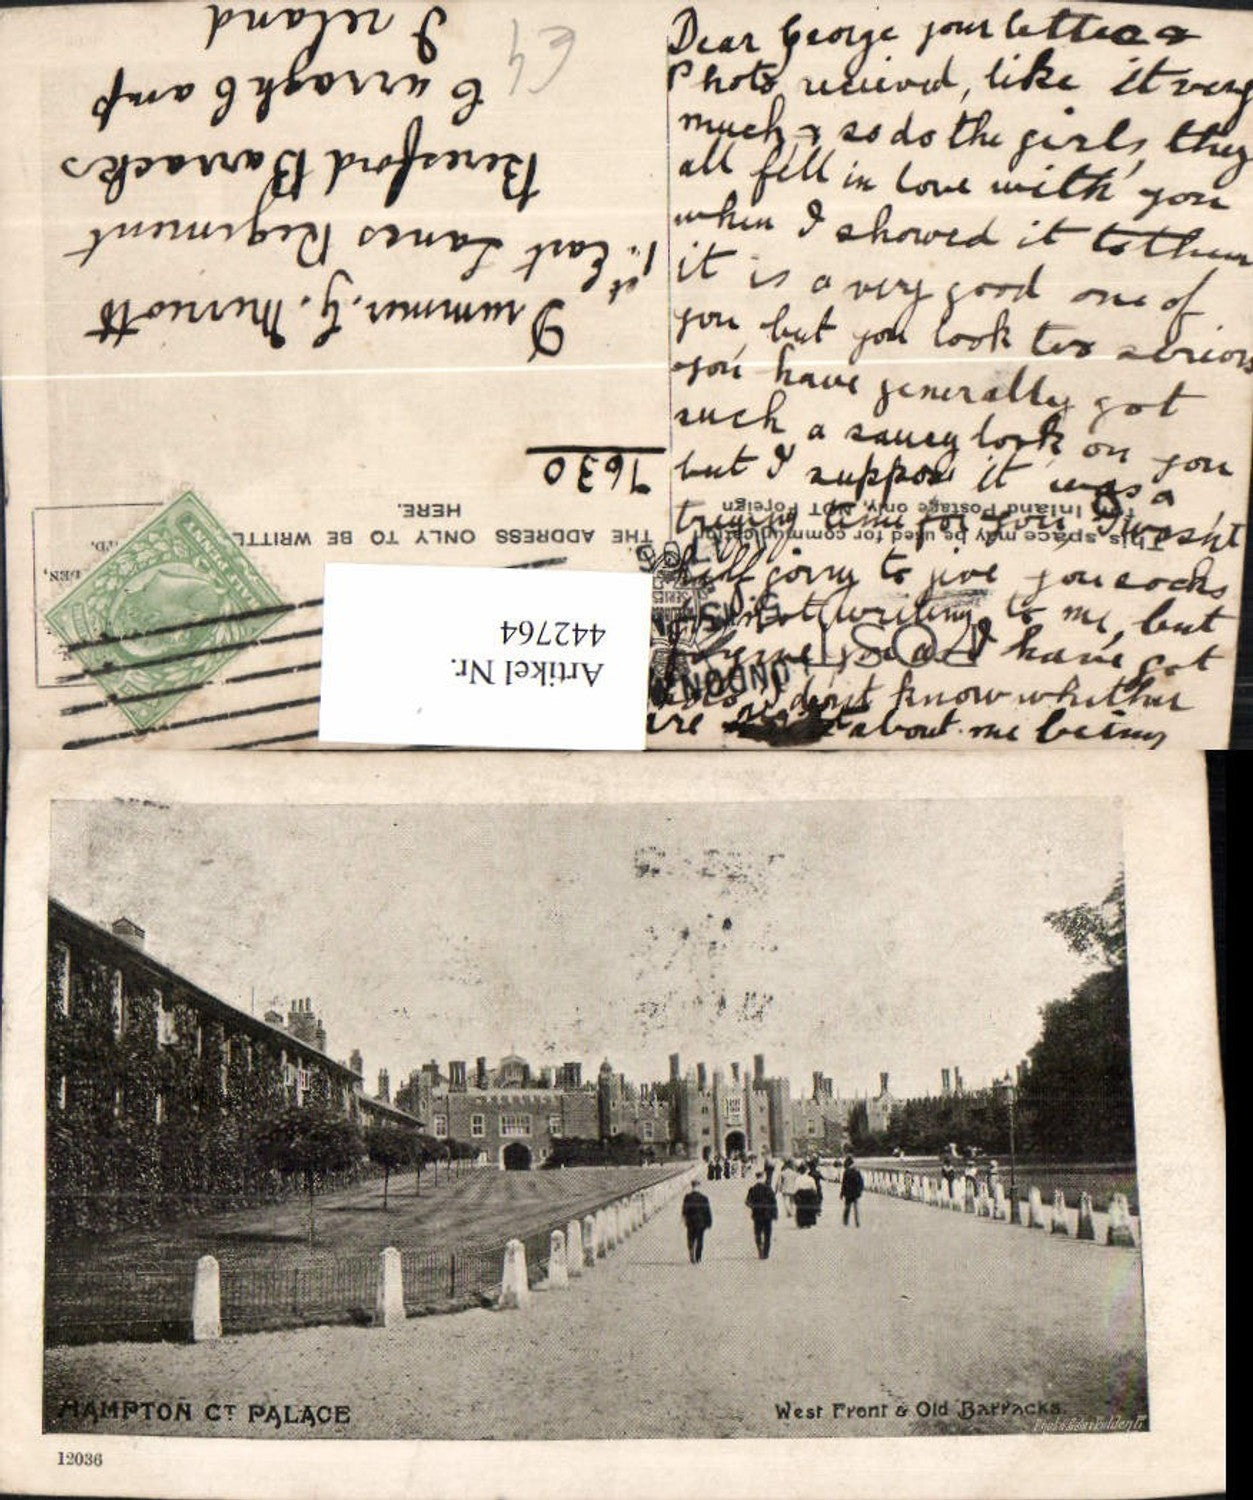 Dear George your letter &
Photo recieved, like it very
much & so do the girls, they
all fell in love with you
when I showed it to them
it is a very good one of
you, but you look too serious
you have generally got
such a saucy look on you
but I suppose it was a
trying time for you, I wasn't
half going to give you socks
for not writing to me, but
forgive you as I have got
don't know whether
about me being
Drummer. G. Merriott
1st East Lancs Regiment
Beresford Barracks
Curragh Camp
Ireland
64
7630
This space may be used for communication
Inland Postage only, NOT Foreign
THE ADDRESS ONLY TO BE WRITTE
HERE.
POST
LONDON
HALF PENNY
Artikel Nr.
442764
HAMPTON CT PALACE
West Front & Old Barracks.
12036